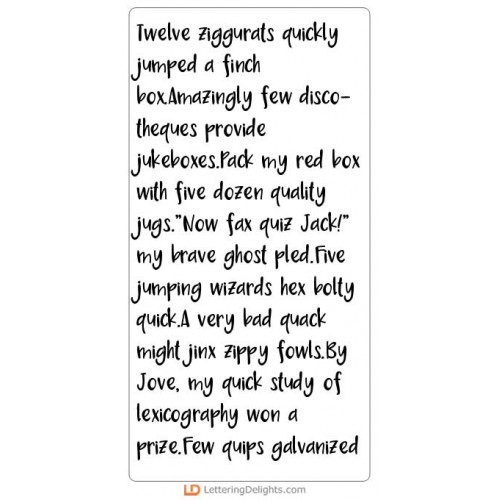 Twelve ziggurats quickly
jumped a finch
box.Amazingly few disco-
theques provide
jukeboxes.Pack my red box
with five dozen quality
jugs."Now fax quiz Jack!"
my brave ghost pled.Five
jumping wizards hex bolty
quick.A very bad quack
might jinx zippy fowls.By
Jove, my quick study of
lexicography won a
prize.Few quips galvanized
LD LetteringDelights.com